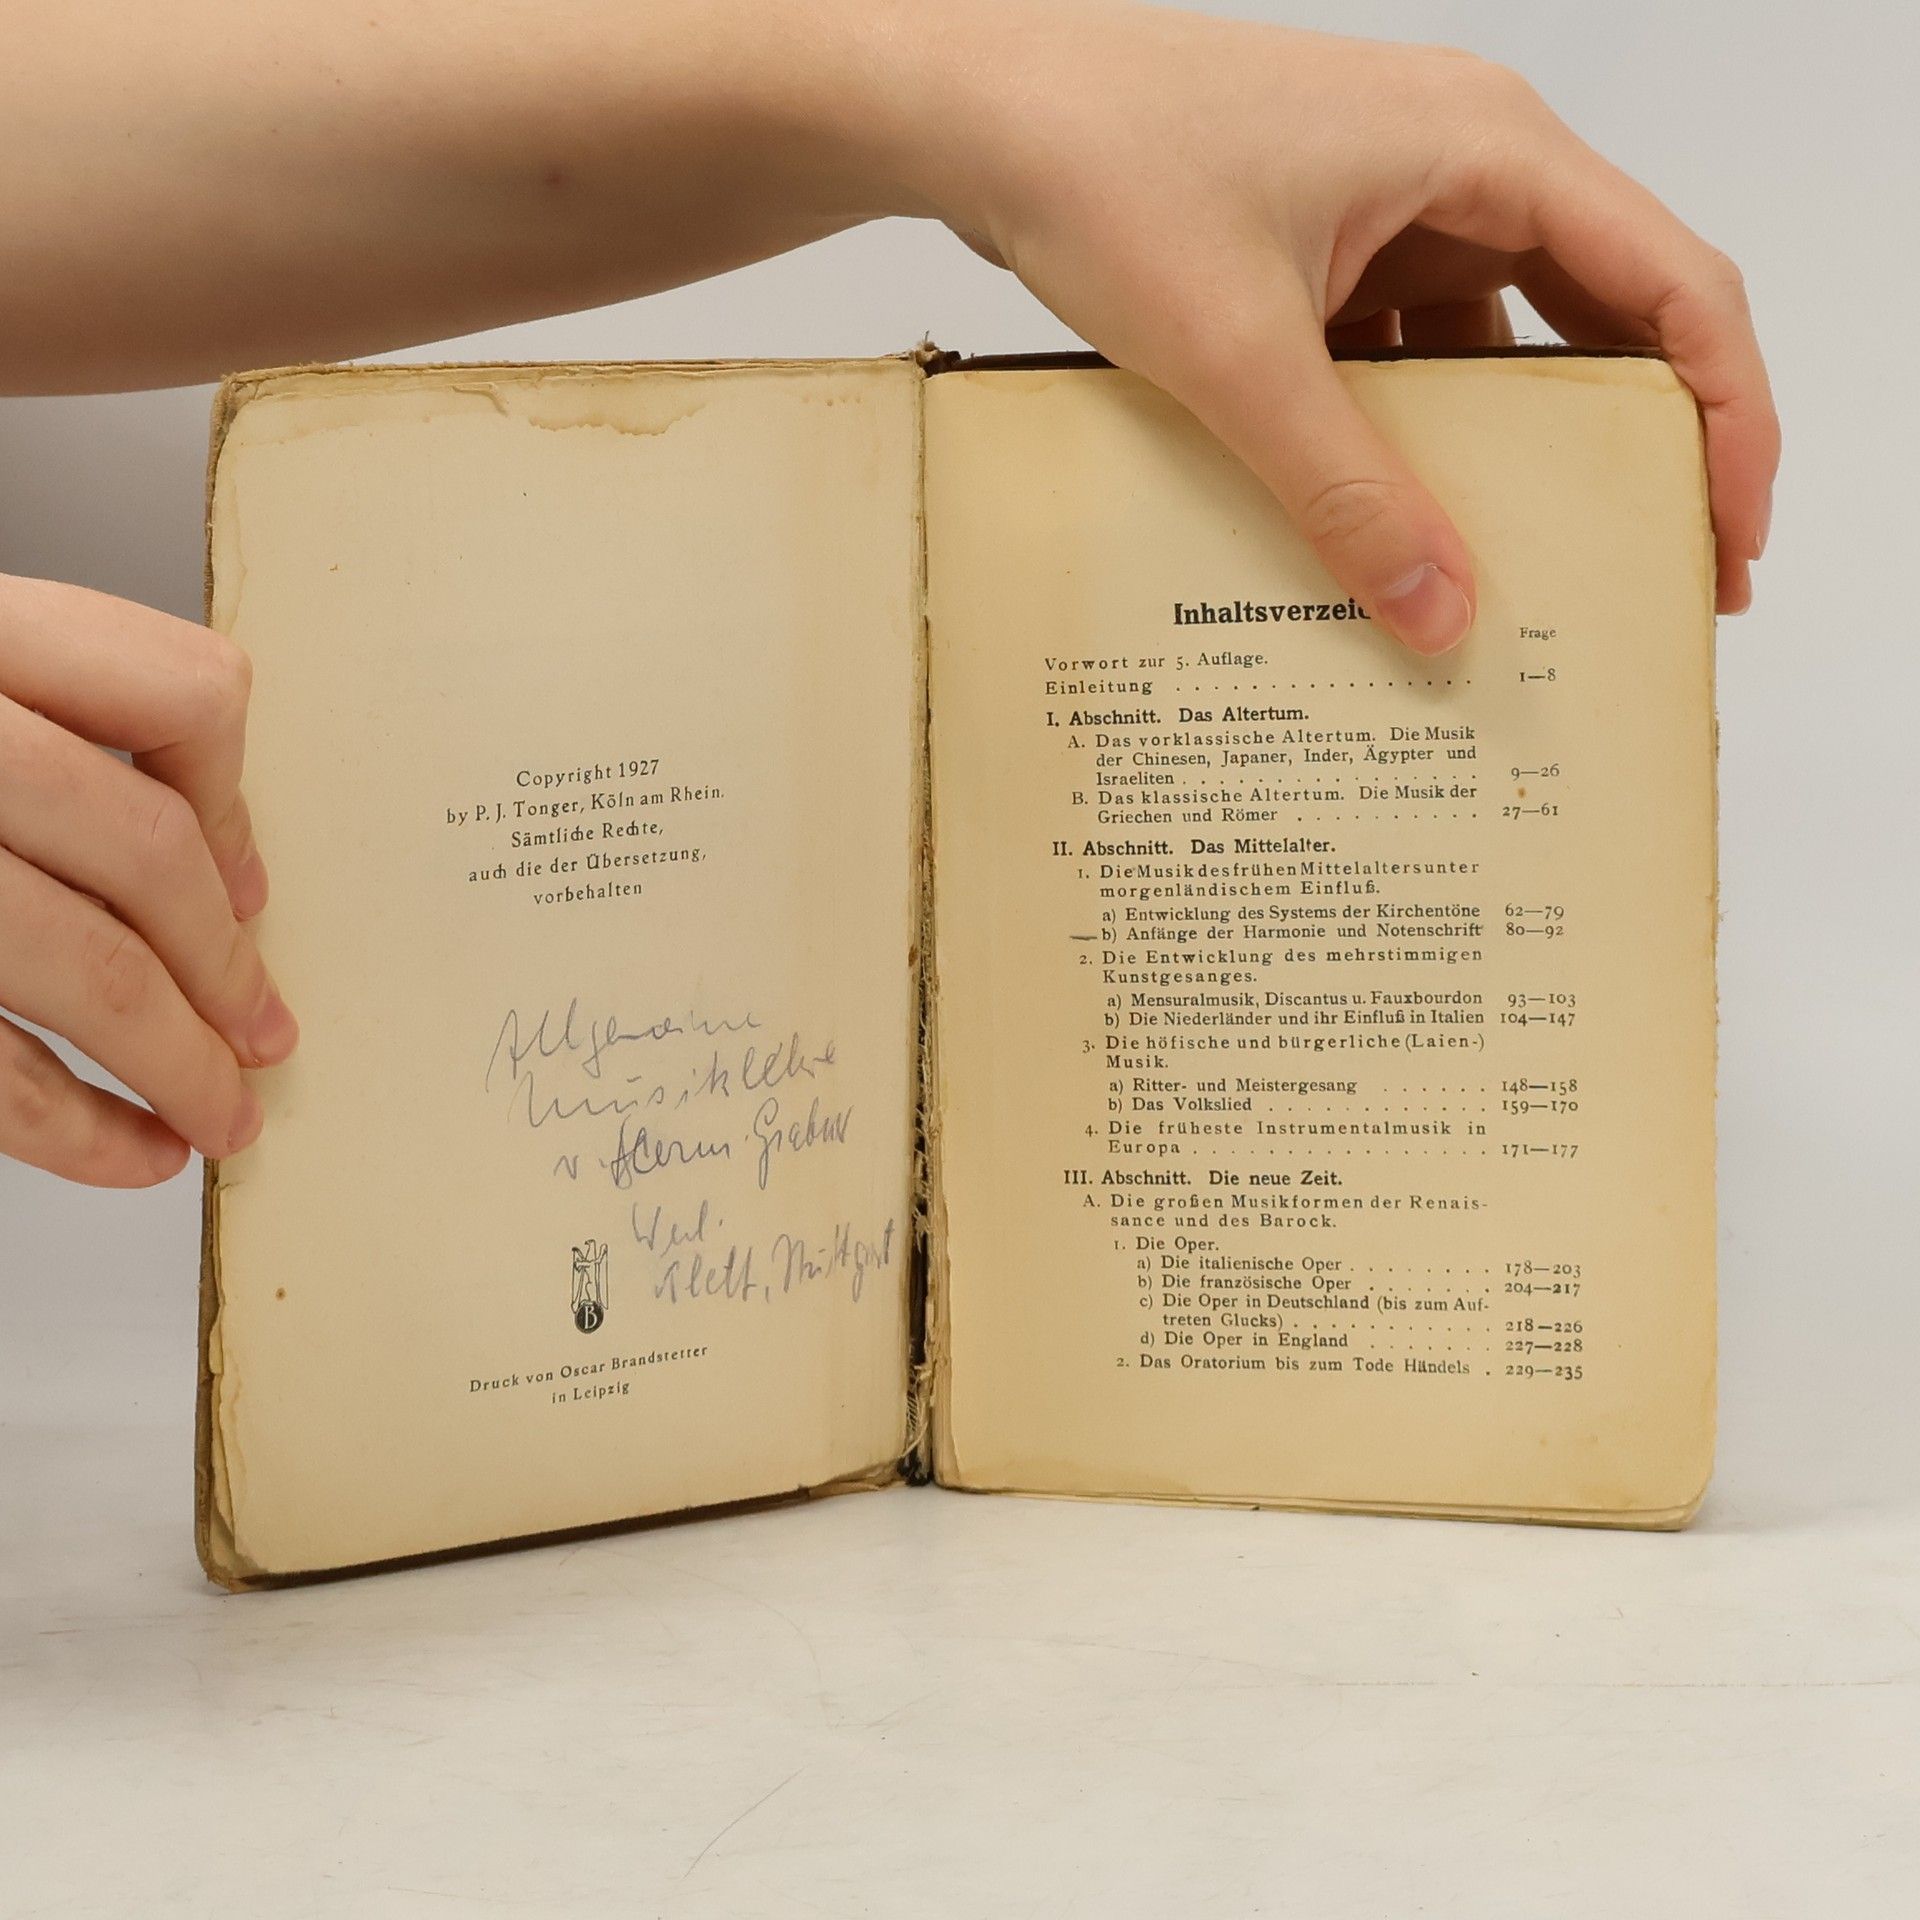 Copyright 1927
by P. J. Tonger, Köln am Rhein.
Sämtliche Rechte,
auch die der Übersetzung,
vorbehalten
Allgemeine
Musiklehre
v. Herm. Grabner
Verl.
Klett, Stuttgart
B
Druck von Oscar Brandstetter
in Leipzig
Inhaltsverzeic
Frage
Vorwort zur 5. Auflage.
Einleitung . . . . . . . . . . . . . . . . 1—8
I. Abschnitt. Das Altertum.
A. Das vorklassische Altertum. Die Musik
der Chinesen, Japaner, Inder, Ägypter und
Israeliten . . . . . . . . . . . . . . . . 9—26
B. Das klassische Altertum. Die Musik der
Griechen und Römer . . . . . . . . . . 27—61
II. Abschnitt. Das Mittelalter.
1. Die Musik des frühen Mittelalters unter
morgenländischem Einfluß.
a) Entwicklung des Systems der Kirchentöne 62—79
b) Anfänge der Harmonie und Notenschrift 80—92
2. Die Entwicklung des mehrstimmigen
Kunstgesanges.
a) Mensuralmusik, Discantus u. Fauxbourdon 93—103
b) Die Niederländer und ihr Einfluß in Italien 104—147
3. Die höfische und bürgerliche (Laien-)
Musik.
a) Ritter- und Meistergesang . . . . . . 148—158
b) Das Volkslied . . . . . . . . . . . . 159—170
4. Die früheste Instrumentalmusik in
Europa . . . . . . . . . . . . . . . . 171—177
III. Abschnitt. Die neue Zeit.
A. Die großen Musikformen der Renais-
sance und des Barock.
1. Die Oper.
a) Die italienische Oper . . . . . . . . 178—203
b) Die französische Oper . . . . . . . 204—217
c) Die Oper in Deutschland (bis zum Auf-
treten Glucks) . . . . . . . . . . . 218—226
d) Die Oper in England . . . . . . . 227—228
2. Das Oratorium bis zum Tode Händels . 229—235